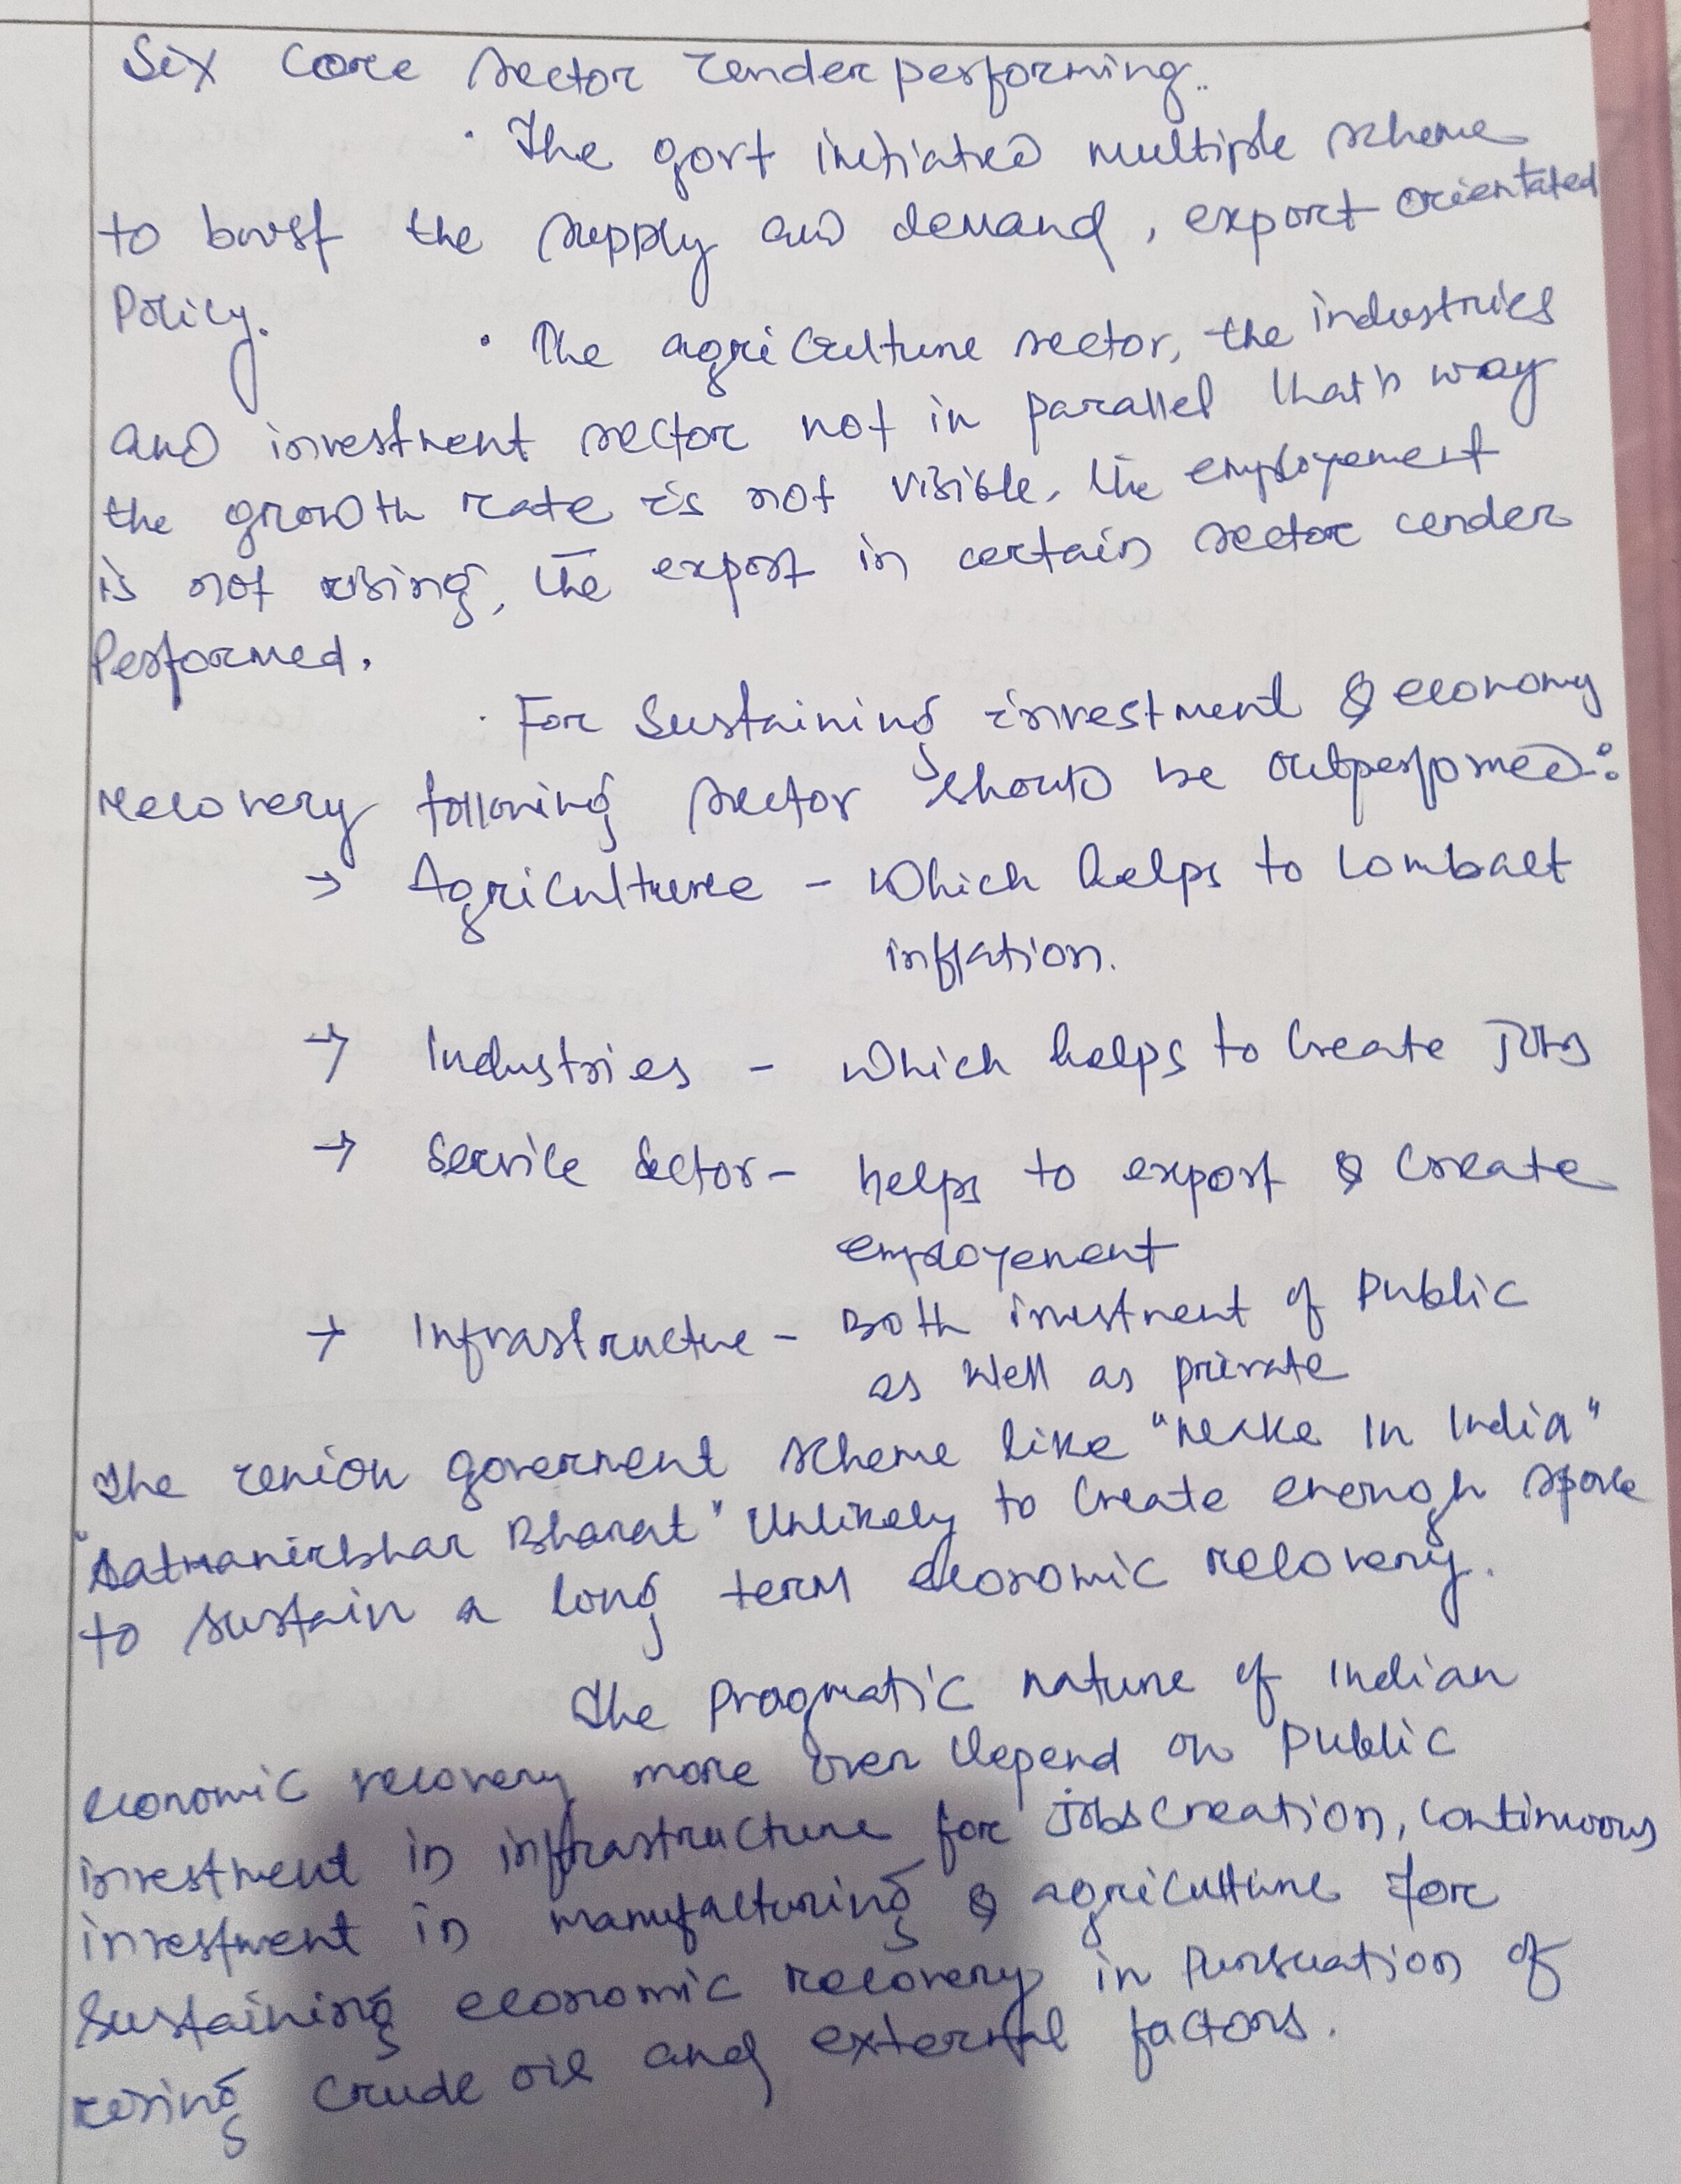 Six core sector underperforming.
· The govt initiated multiple scheme
to boost the supply and demand, export orientated
Policy.
· The agriculture sector, the industries
and investment sector not in parallel that's way
the growth rate is not visible, the employement
is not rising, the export in certain sector under
Performed.
· For Sustaining investment & economy
recovery following sector should be outperformed:
→ Agriculture - Which helps to combalt
inflation.
→ Industries - which helps to create Jobs
→ Service Sector - helps to export & create
employement
→ Infrastructure - Both investment of Public
as well as private
The union government scheme like "Make In India"
"Aatmanirbhar Bharat" Unlikely to create enough space
to sustain a long term economic recovery.
The Pragmatic nature of Indian
economic recovery more over depend on Public
investment in infrastructure for Jobs creation, continuous
investment in manufacturing & agriculture for
Sustaining economic recovery in Pursuation of
rising crude oil and external factors.